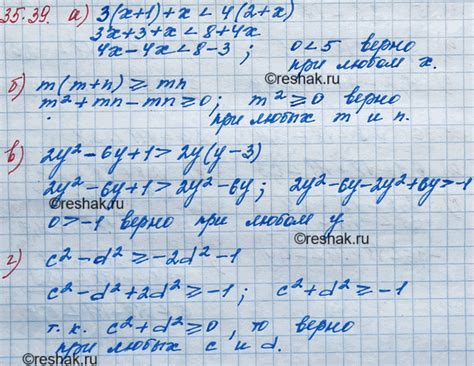 35.39. а) 3(x+1)+x < 4(2+x)
3x+3+x < 8+4x
4x-4x < 8-3; 0<5 верно
при любом x.
©reshak.ru
б) m(m+n) ⩾ mn
m²+mn-mn ⩾ 0; m² ⩾ 0 верно
при любых m и n.
©reshak.ru
в) 2y²-6y+1 > 2y(y-3)
2y²-6y+1 > 2y²-6y; 2y²-6y-2y²+6y > -1
0 > -1 верно при любом y
©reshak.ru
г) c²-d² ⩾ -2d²-1
c²-d²+2d² ⩾ -1; c²+d² ⩾ -1
т.к. c²+d² ⩾ 0, то верно
при любых c и d.
©reshak.ru
©reshak.ru